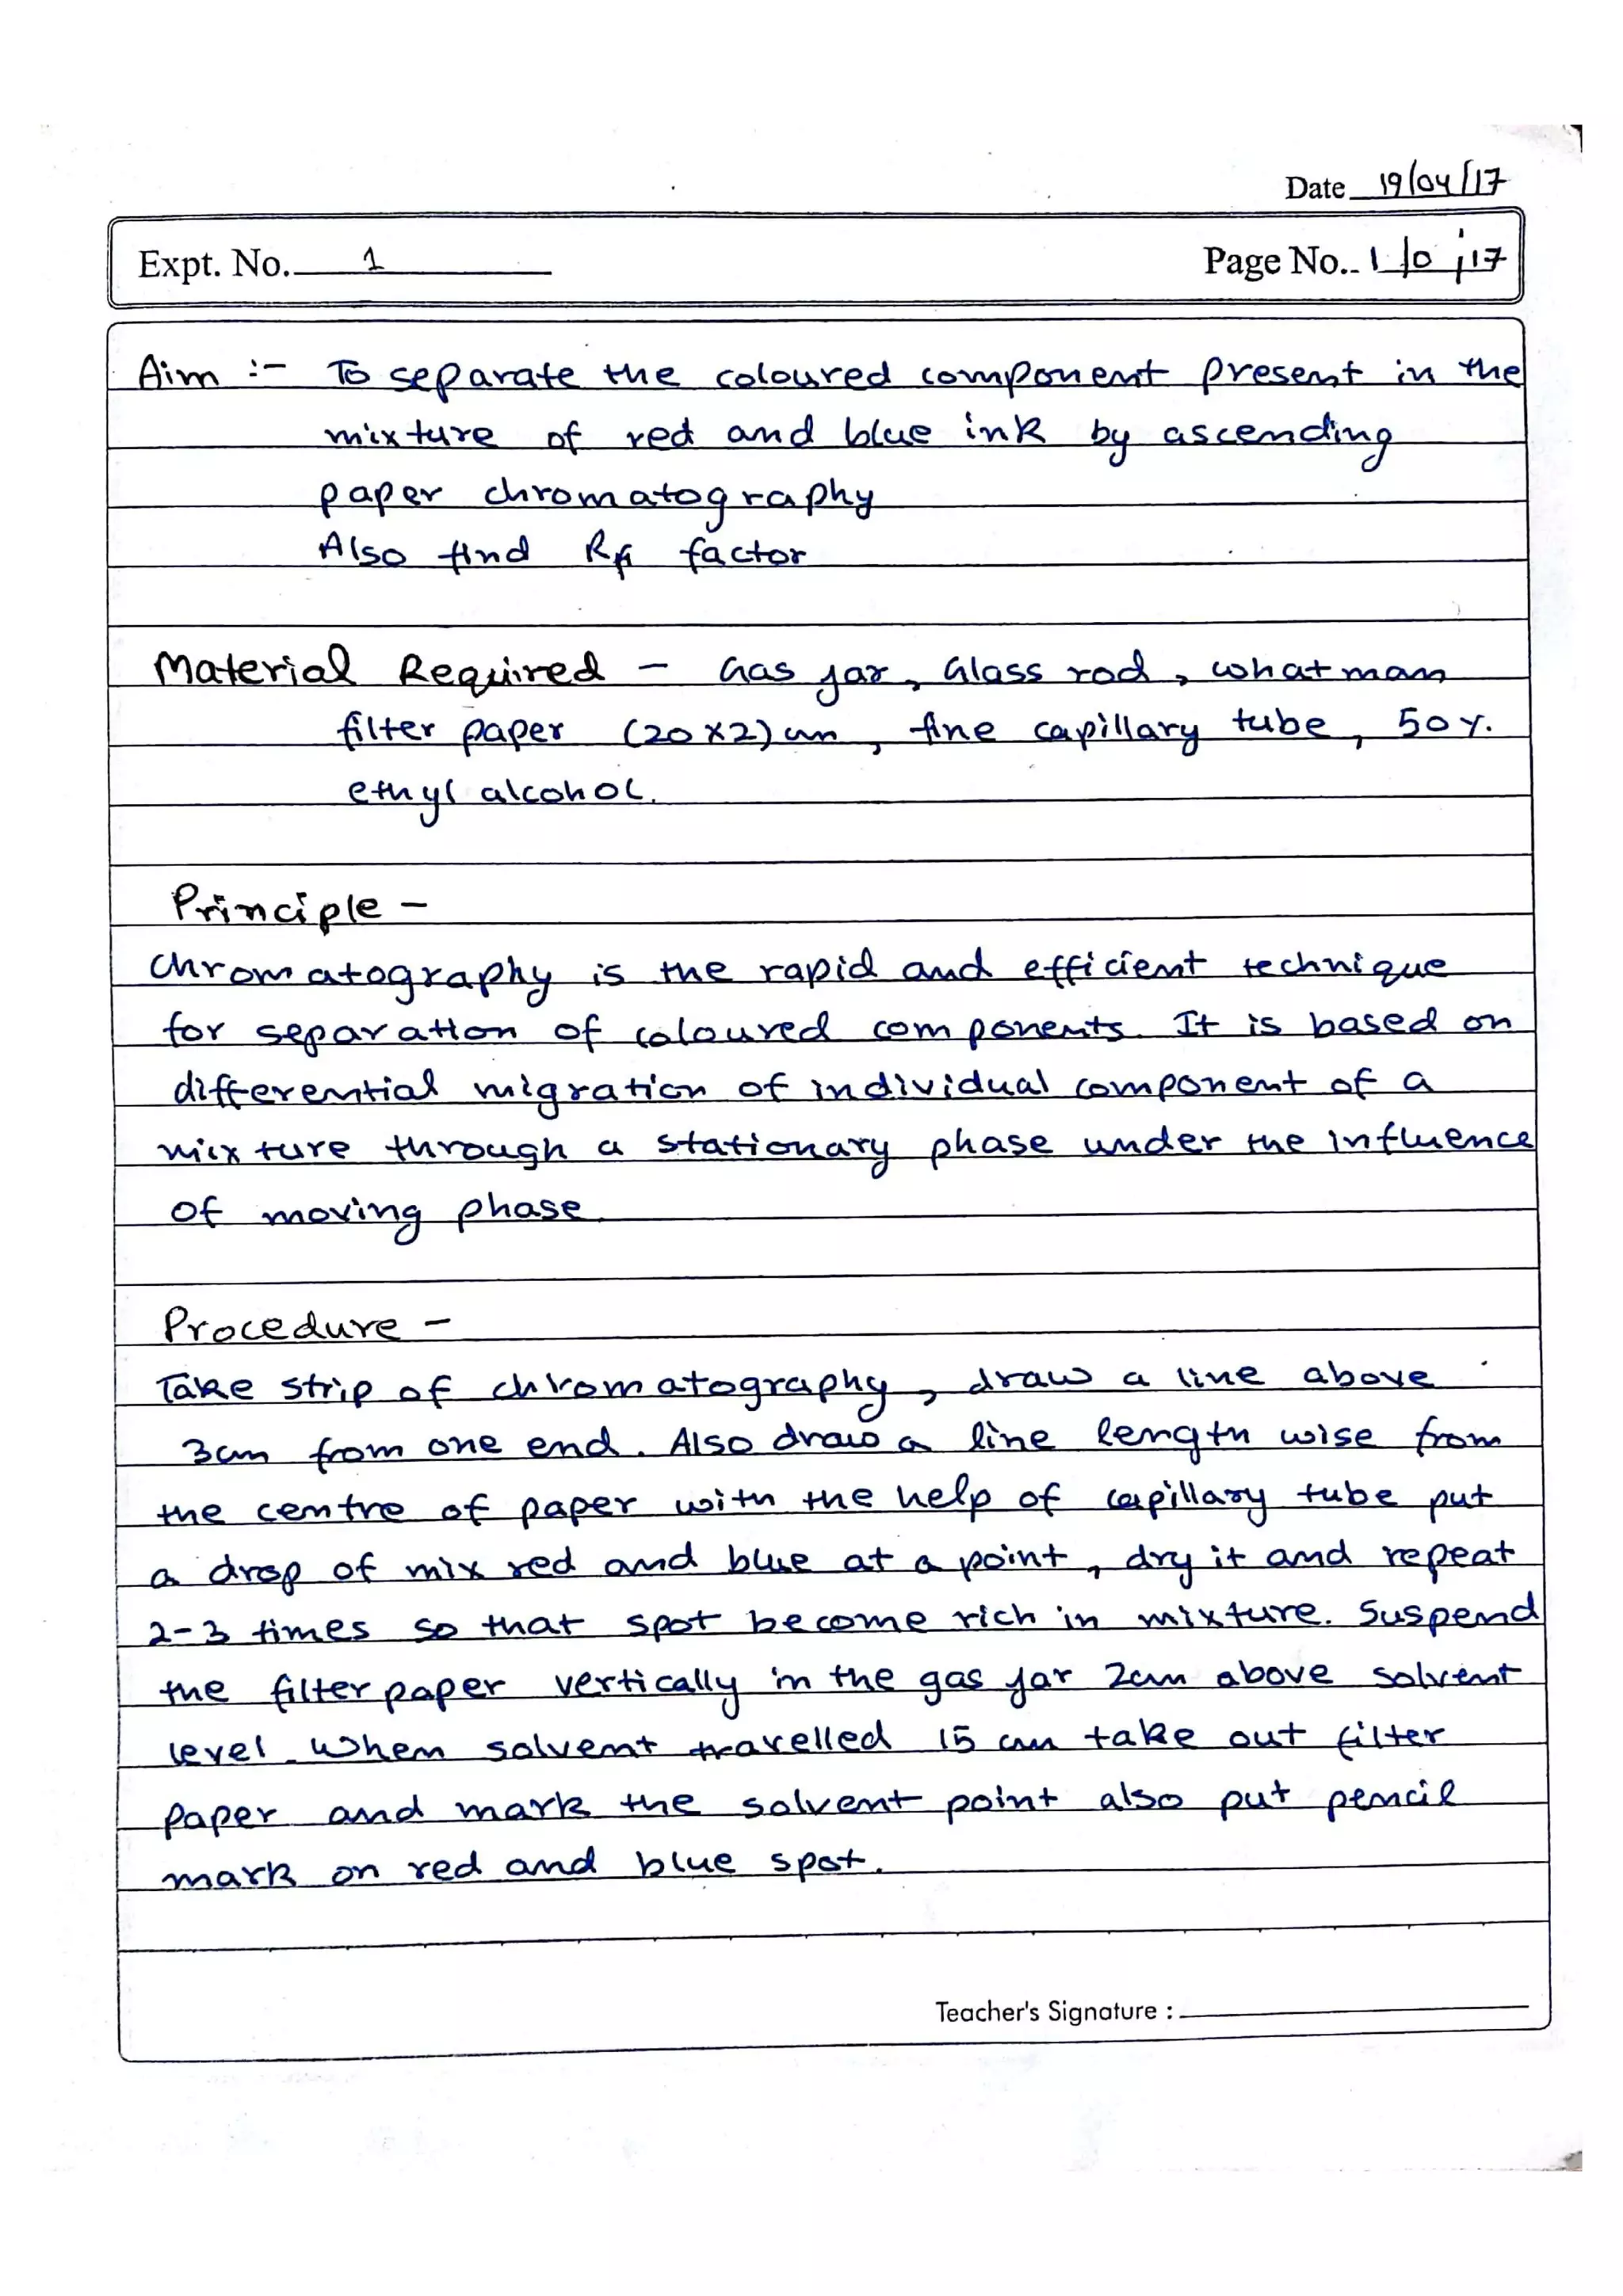 Date 19/04/17
Expt. No. 1
Page No.. 1
Aim :- To separate the coloured component present in the
mixture of red and blue ink by ascending
paper chromatography
Also find Rf factor
Material Required - Gas jar, Glass rod, whatman
filter paper (20x2) cm, fine capillary tube, 50%
ethyl alcohol.
Principle -
Chromatography is the rapid and efficient technique
for separation of coloured components. It is based on
differential migration of individual component of a
mixture through a stationary phase under the influence
of moving phase.
Procedure -
Take strip of chromatography, draw a line above
3cm from one end. Also draw a line length wise from
the centre of paper with the help of capillary tube put
a drop of mix red and blue at a point, dry it and repeat
2-3 times so that spot become rich in mixture. Suspend
the filter paper vertically in the gas jar 2cm above solvent
level. When solvent travelled 15 cm take out filter
paper and mark the solvent point also put pencil
mark on red and blue spot.
Teacher's Signature :